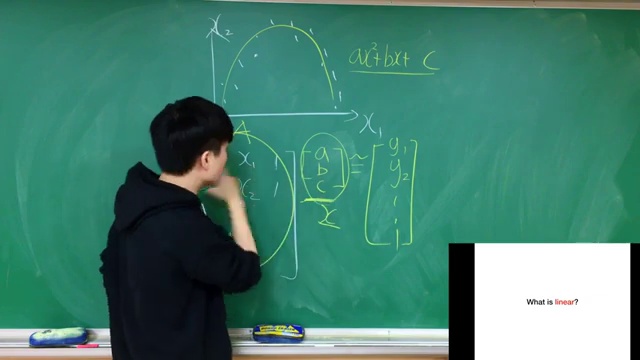 x₂
ax²+bx+ c
x₁
A
x₁ 1
x₂ 1
a
b
c
≅
y₁
y₂
x
What is linear?